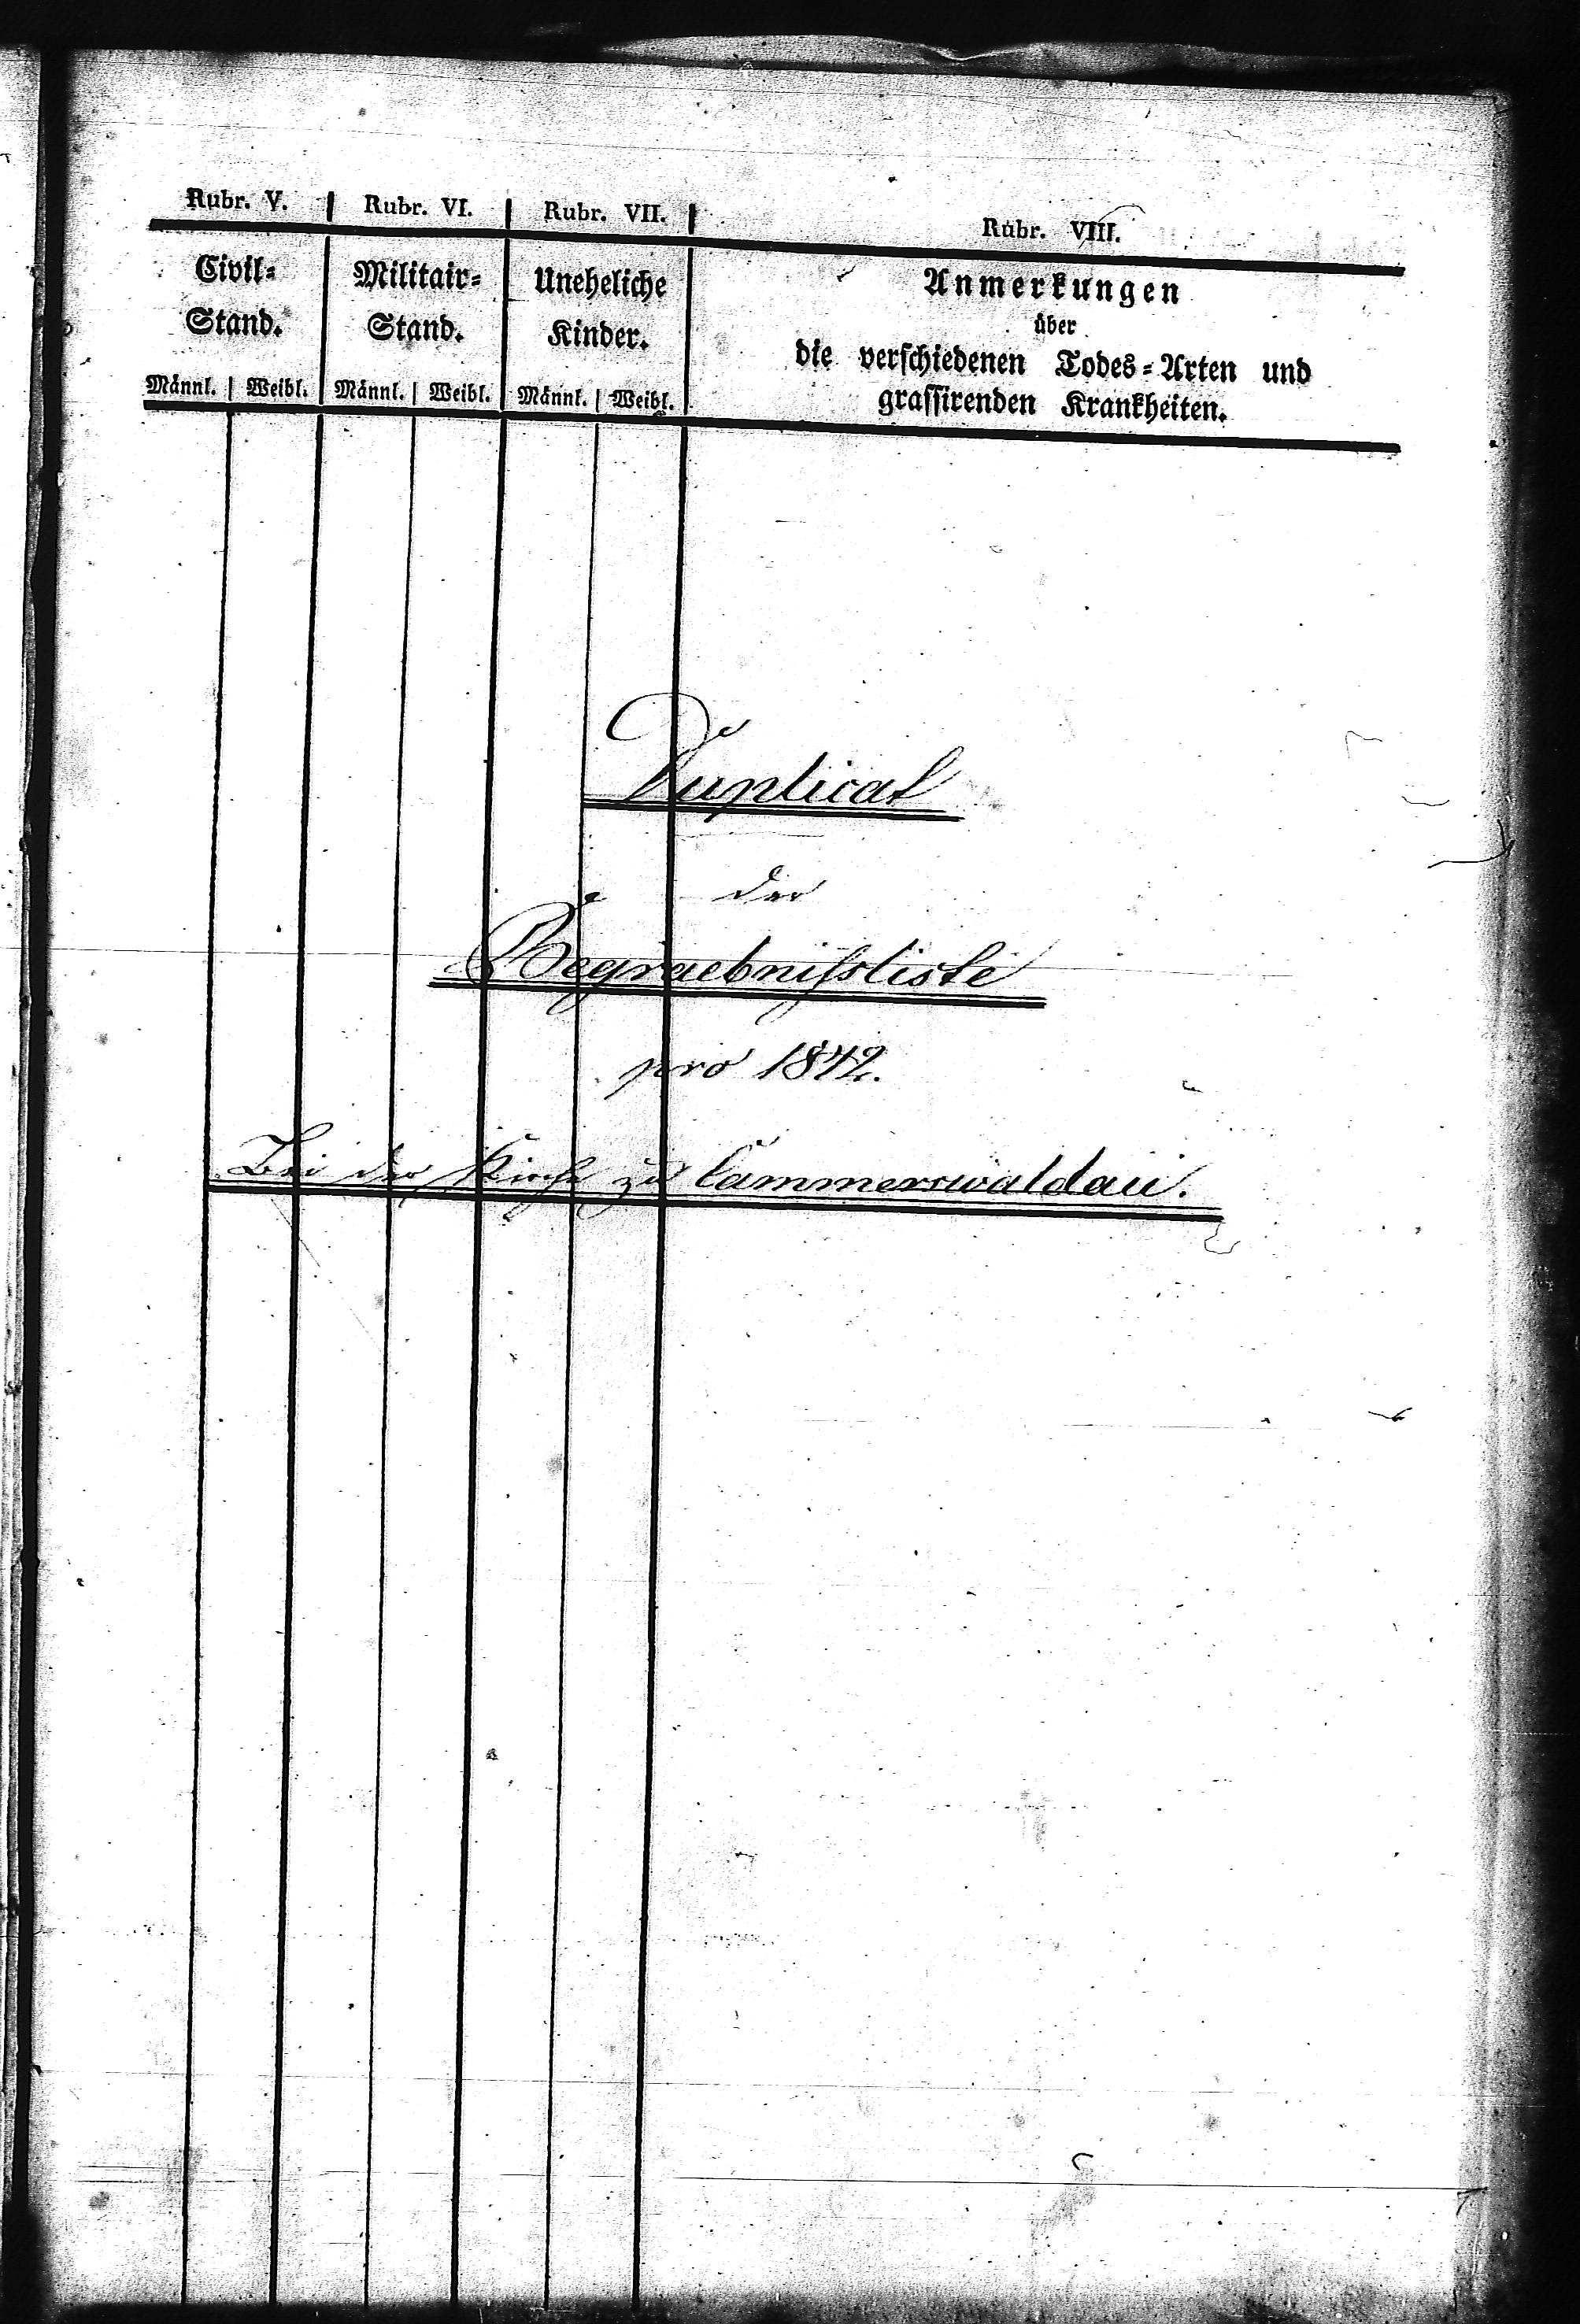 Rubr. V. | Rubr. VI. | Rubr. VII. | Rubr. VIII.
Civil= Stand. | Militair= Stand. | Uneheliche Kinder. | Anmerkungen
über
die verschiedenen Todes=Arten und
grassirenden Krankheiten.
Männl. | Weibl. | Männl. | Weibl. | Männl. | Weibl.
Duplicat
der
Begraebnißliste
pro 1842.
Bei der Kirche zu Cammerswaldau.